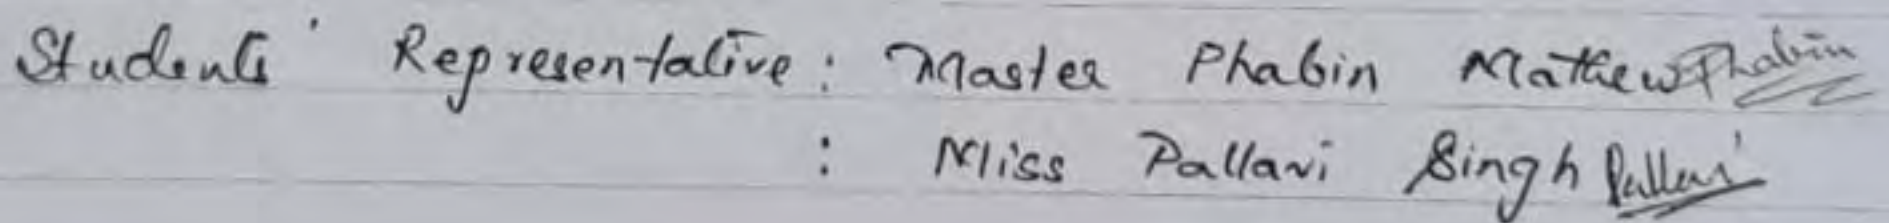 Students' Representative : Master Phabin Mathew Phabin
: Miss Pallavi Singh Pallavi